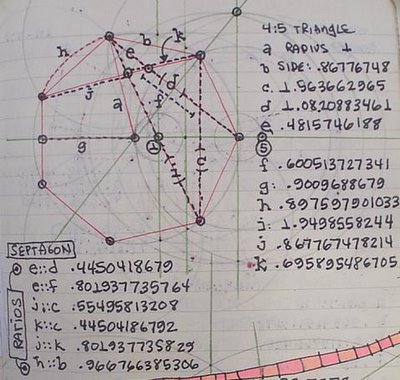 h
b
k
e
j
d
a
f
g
1
5
c
i
4:5 TRIANGLE
a RADIUS 1
b SIDE: .86776748
c. 1.563662965
d 1.0820883461
e .4815746188
f .600513727341
g: .9009688679
h .897597901033
i: 1.9498558244
j .867767478214
k .695895486705
SEPTAGON
RATIOS
e::d .4450418679
e::f .801937735764
i::c .55495813208
k::c .44504186792
j::k .801937735829
h::b .966766385306